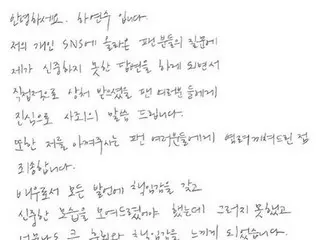 안녕하세요. 하연수 입니다.
저의 개인 SNS에 올라온 팬 분들의 질문에
제가 신중하지 못한 답변을 하게 되면서
직접적으로 상처 받으셨을 팬 여러분들에게
진심으로 사죄의 말씀 드립니다.
또한 저를 아껴주시는 팬 여러분들에게 염려끼쳐드린 점
죄송합니다.
배우로서 모든 발언에 책임감을 갖고
신중한 모습을 보여드렸어야 했는데 그러지 못했고
큰 책임감을 느끼게 되었습니다.